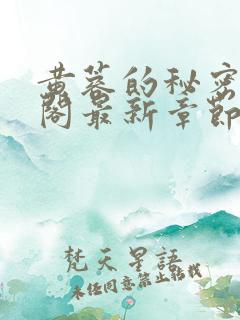 黄蓉的秘密
阁最新章节
梵天星語
未经同意禁止转载